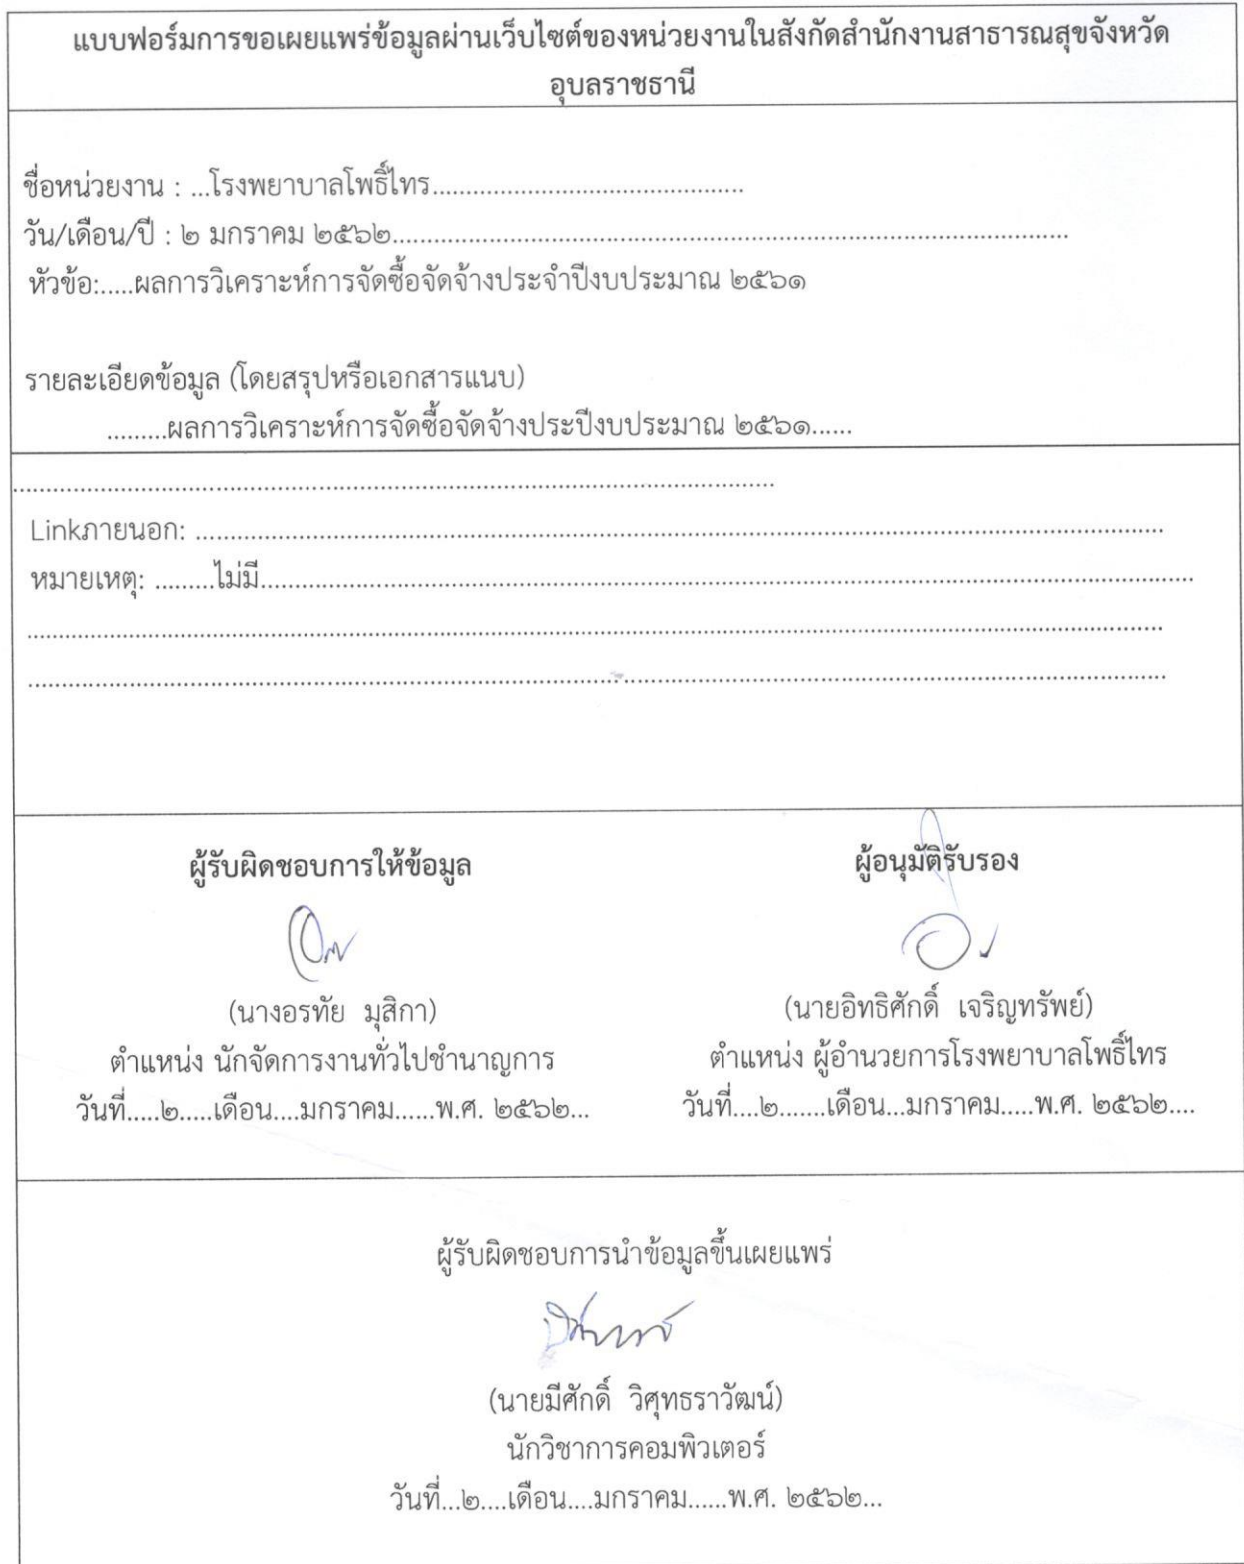 แบบฟอร์มการขอเผยแพร่ข้อมูลผ่านเว็บไซต์ของหน่วยงานในสังกัดสำนักงานสาธารณสุขจังหวัด
อุบลราชธานี
ชื่อหน่วยงาน : ...โรงพยาบาลโพธิ์ไทร..............................................
วัน/เดือน/ปี : ๒ มกราคม ๒๕๖๒....................................................................................................
หัวข้อ:.....ผลการวิเคราะห์การจัดซื้อจัดจ้างประจำปีงบประมาณ ๒๕๖๑
รายละเอียดข้อมูล (โดยสรุปหรือเอกสารแนบ)
.........ผลการวิเคราะห์การจัดซื้อจัดจ้างประปีงบประมาณ ๒๕๖๑......
..................................................................................................................
Linkภายนอก: ................................................................................................................................................
หมายเหตุ: .........ไม่มี...........................................................................................................................................
..........................................................................................................................................................................
..........................................................................................................................................................................
ผู้รับผิดชอบการให้ข้อมูล ผู้อนุมัติรับรอง
(นางอรทัย มุสิกา) (นายอิทธิศักดิ์ เจริญทรัพย์)
ตำแหน่ง นักจัดการงานทั่วไปชำนาญการ ตำแหน่ง ผู้อำนวยการโรงพยาบาลโพธิ์ไทร
วันที่.....๒.....เดือน....มกราคม......พ.ศ. ๒๕๖๒... วันที่....๒.......เดือน...มกราคม.....พ.ศ. ๒๕๖๒....
ผู้รับผิดชอบการนำข้อมูลขึ้นเผยแพร่
(นายมีศักดิ์ วิศุทธราวัฒน์)
นักวิชาการคอมพิวเตอร์
วันที่...๒....เดือน....มกราคม......พ.ศ. ๒๕๖๒...